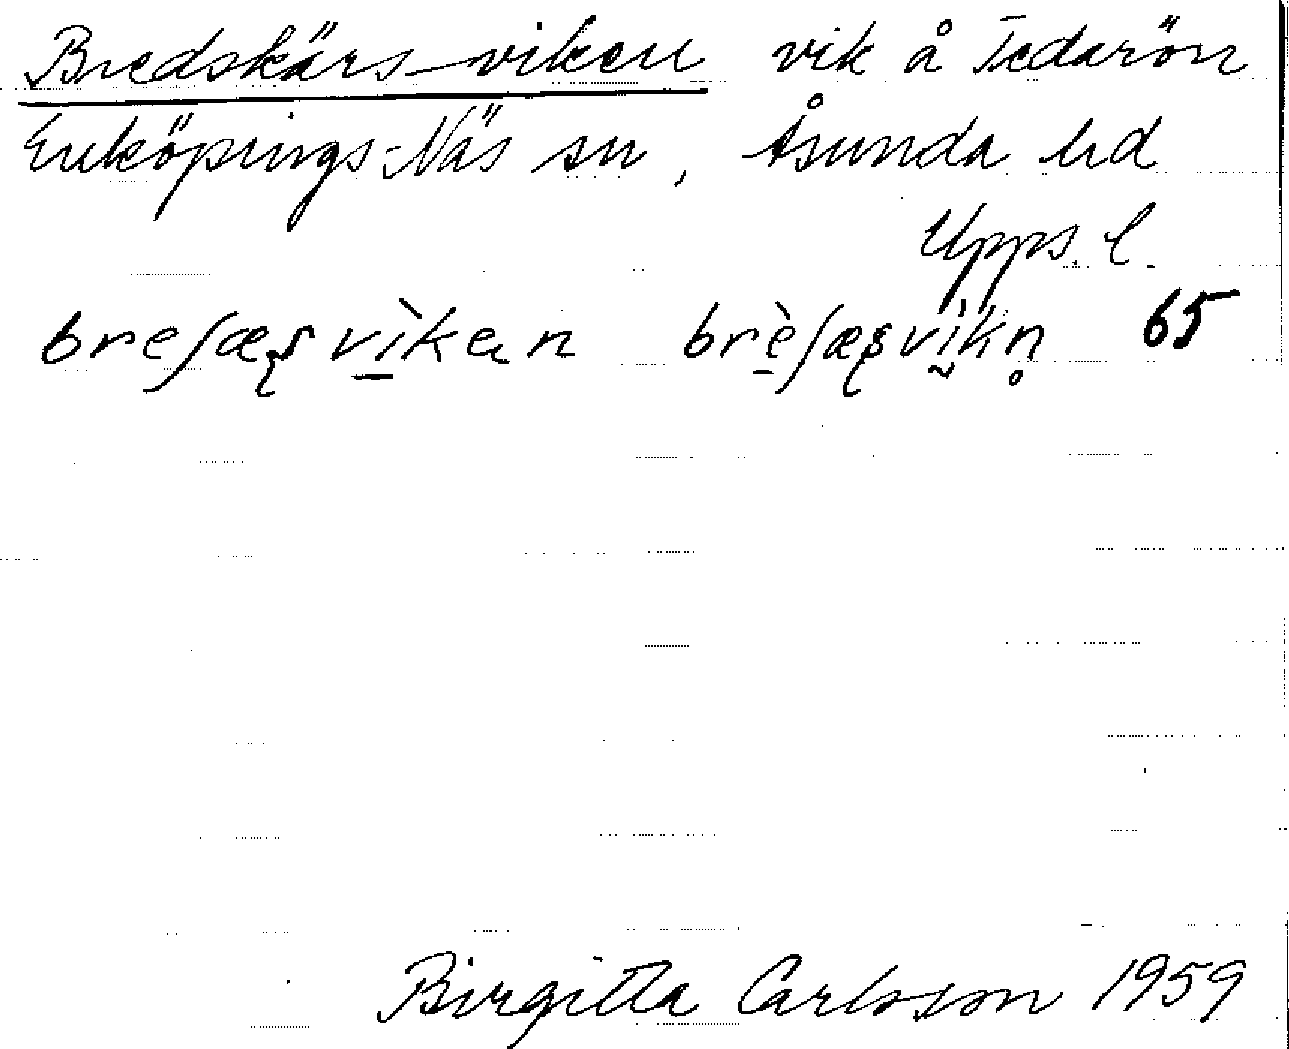 Bredskärs-viken vik å Tedarön
Enköpings-Näs sn, Åsunda hd
Upps. l.
breʃæʂvìkan brèʃæʂvìkn̥ 65
Birgitta Carlsson 1959